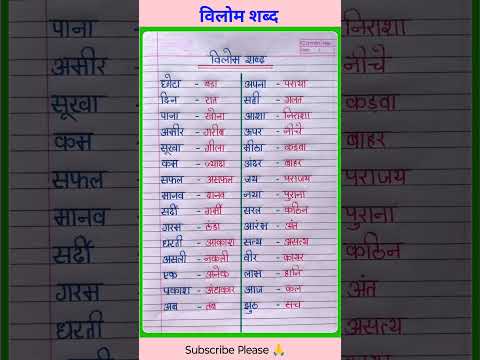 विलोम शब्द
विलोम शब्द
छोटा - बड़ा
दिन - रात
पाना - खोना
अमीर - गरीब
सूखा - गीला
कम - ज्यादा
सफल - असफल
मानव - दानव
सर्दी - गर्मी
गरम - ठंडा
धरती - आकाश
असली - नकली
एक - अनेक
प्रकाश - अंधकार
अब - तब
अपना - पराया
सही - गलत
आशा - निराशा
ऊपर - नीचे
मीठा - कड़वा
अंदर - बाहर
जय - पराजय
नया - पुराना
सरल - कठिन
आरंभ - अंत
सत्य - असत्य
वीर - कायर
लाभ - हानि
आज - कल
झूठ - सच
पाना
अमीर
सूखा
कम
सफल
मानव
सर्दी
गरम
धरती
निराशा
नीचे
कड़वा
बाहर
पराजय
पुराना
कठिन
अंत
असत्य
Subscribe Please 🙏